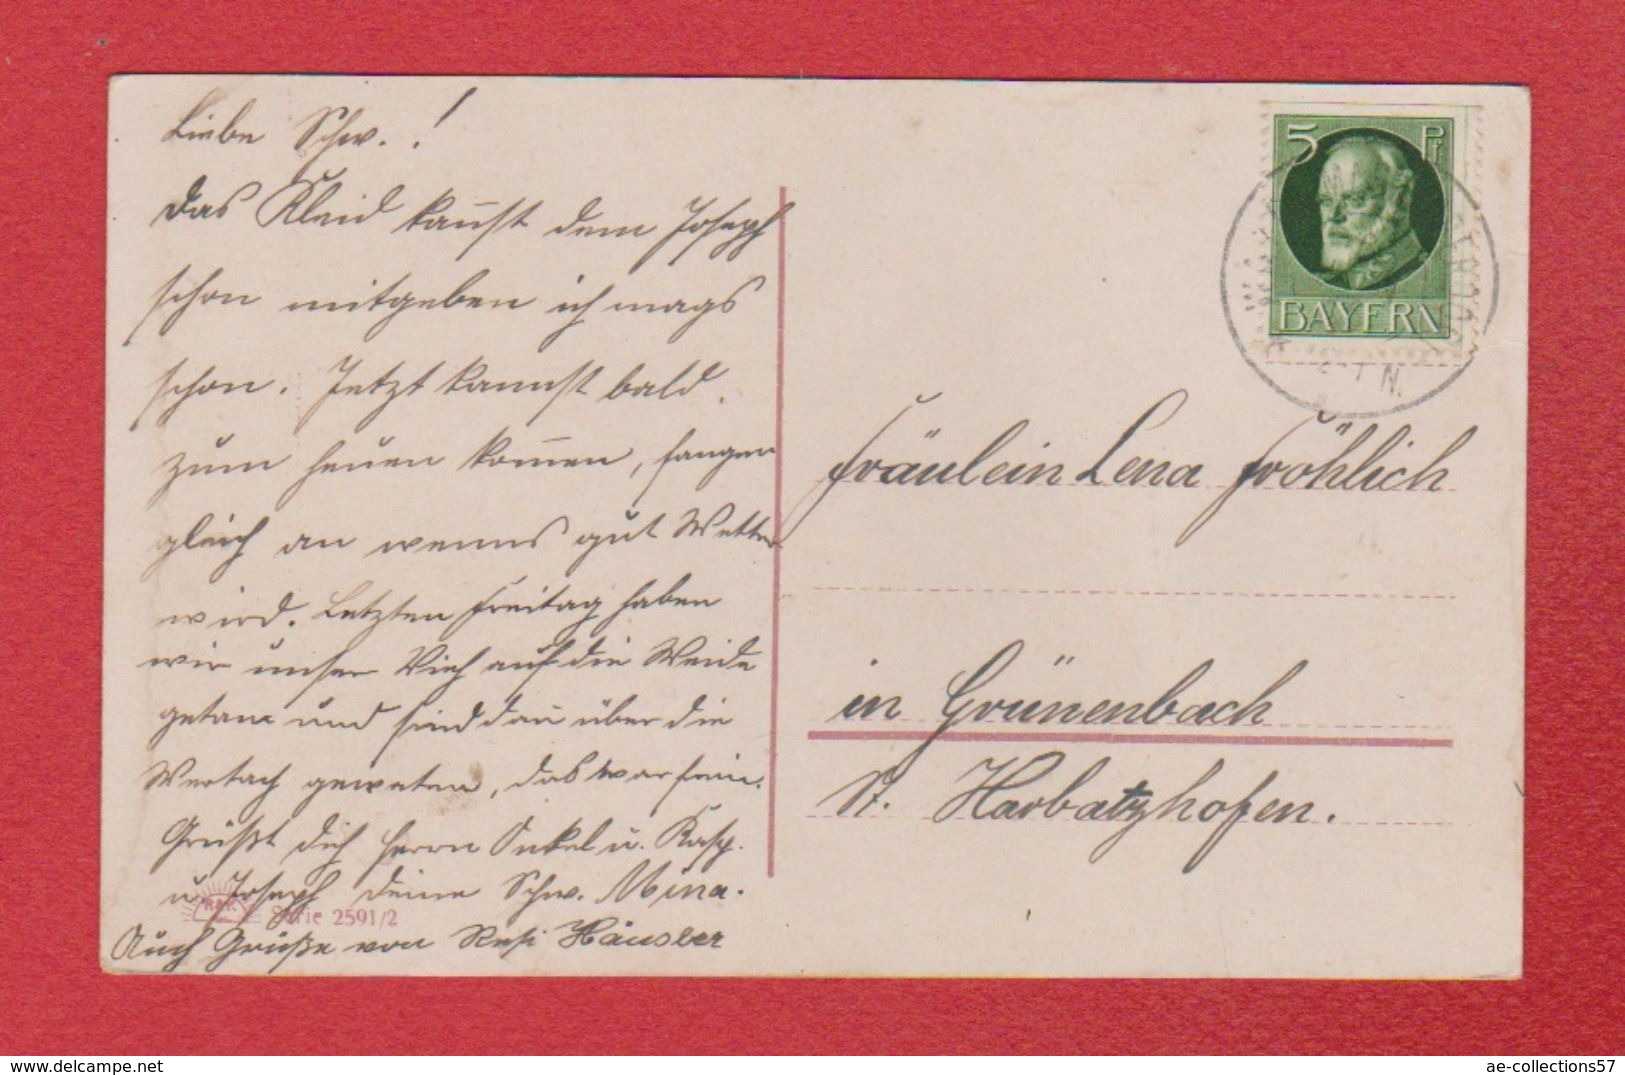 Liebe Schw. !
Das Kleid kannst dem Joseph
schon mitgeben ich mags
schon. Jetzt kannst bald
zum heuen kommen, fangen
gleich an wenns gut Wetter
wird. Letzten Freitag haben
wir unser Vieh auf die Weide
getan und sind dan über die
Wertach geweten, das war fein.
Grüßt dich Herrn Onkel u. Kasp.
u. Joseph deine Schw. Mina.
Auch Grüße von Resi Häusler
Serie 2591/2
5 Pf
BAYERN
Fräulein Lena Fröhlich
in Grünenbach
St. Harbatzhofen.
ae-collections57